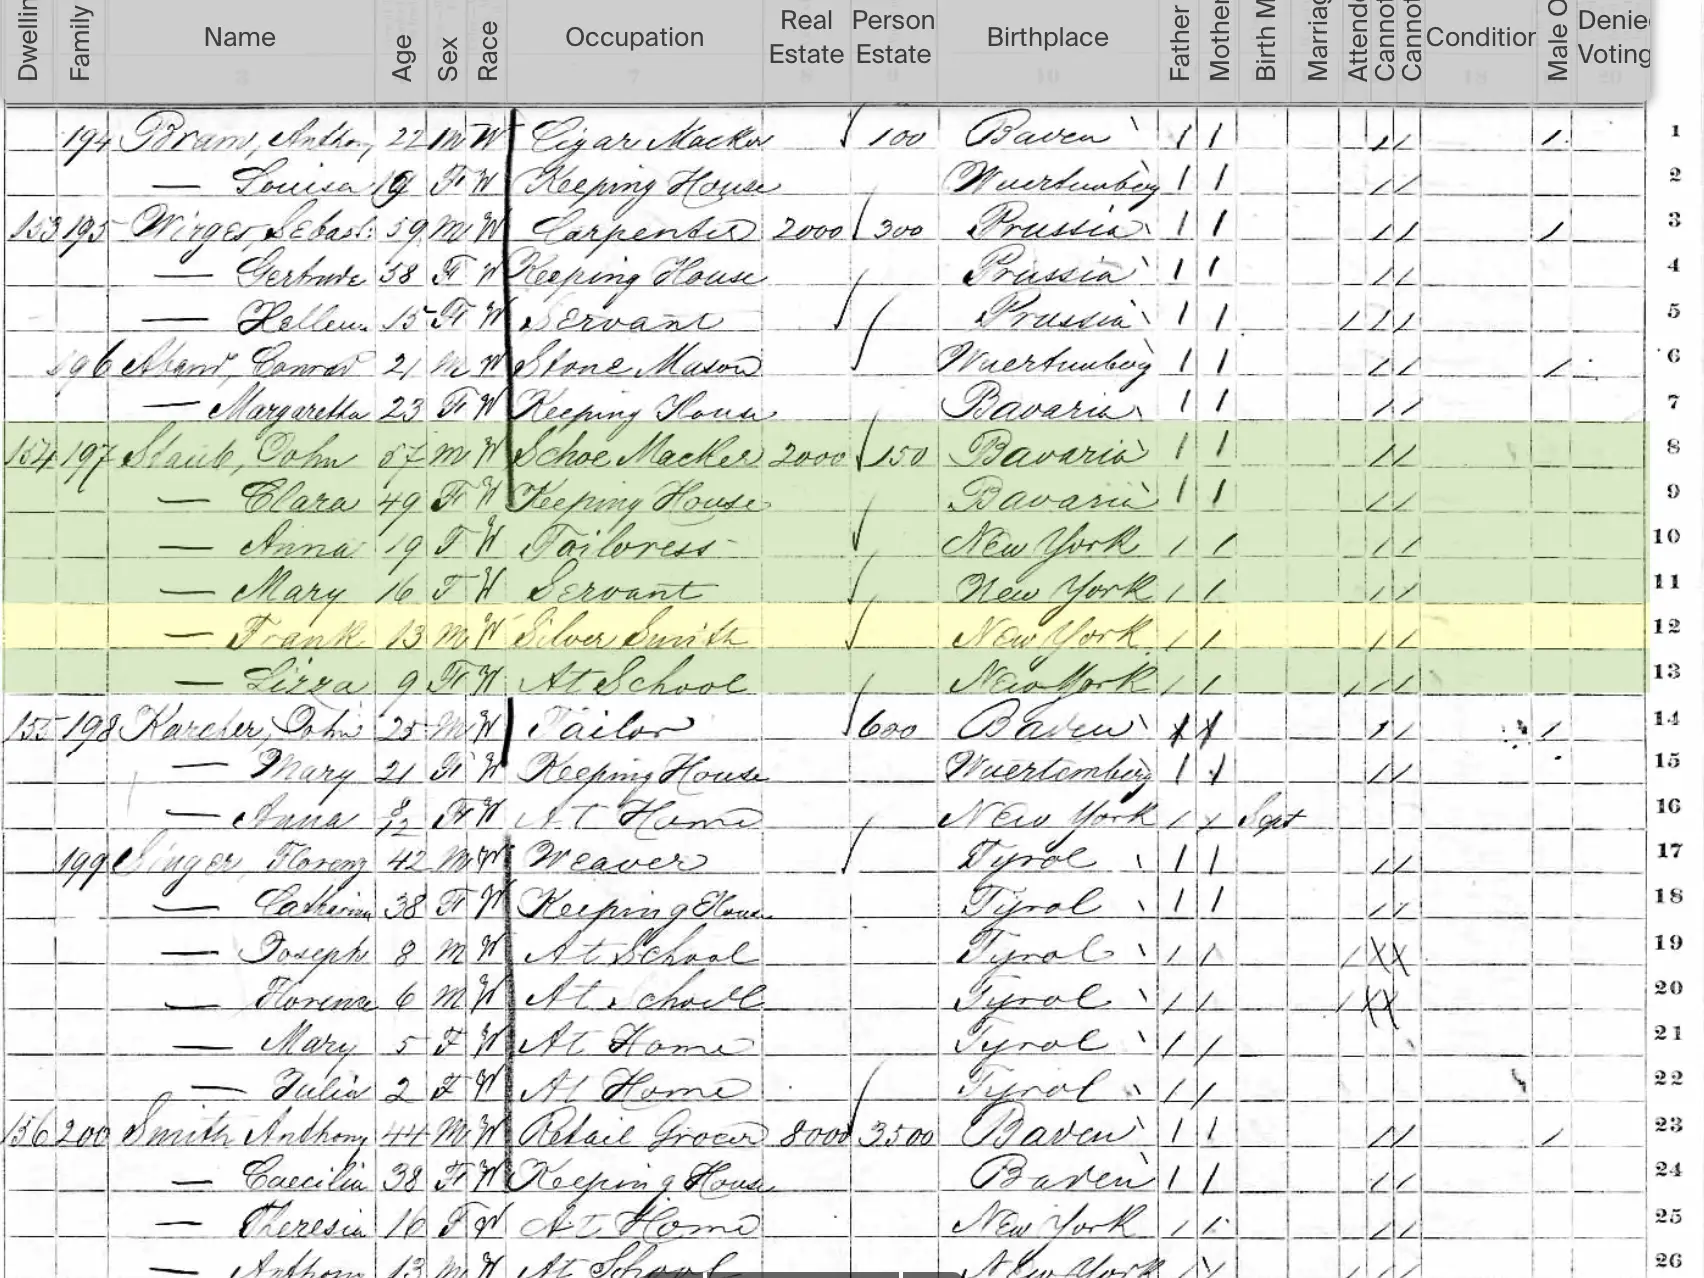 Dwellin Family Name Age Sex Race Occupation Real Estate Person Estate Birthplace Father Mother Birth M Marriag Attende Cannot Cannot Condition Male O Denie Voting
194 Bram, Anthony 22 M W Cigar Macker 100 Baden 1 1 1 1 1 1
— Louisa 19 F W Keeping House Wuertemberg 1 1 1 1 2
153 195 Wirges, Sebast: 59 M W Carpenter 2000 300 Prussia 1 1 1 1 1 3
— Gertrude 58 F W Keeping House Prussia 1 1 4
— Hellen 15 F W Servant Prussia 1 1 1 1 1 5
196 Conrad 21 M W Stone Mason Wuertemberg 1 1 1 1 1 6
— Margaretha 23 F W Keeping House Bavaria 1 1 1 1 7
154 197 Staub, John 57 M W Schoe Macker 2000 150 Bavaria 1 1 1 1 8
— Clara 49 F W Keeping House Bavaria 1 1 1 1 9
— Anna 19 F W Tailoress New York 1 1 1 1 10
— Mary 16 F W Servant New York 1 1 1 1 11
— Frank 13 M W Silver Smith New York 1 1 1 1 12
— Lizza 9 F W At School New York 1 1 1 1 1 13
155 198 Karcher, John 25 M W Tailor 600 Baden 1 1 1 14
— Mary 21 F W Keeping House Wuertemberg 1 1 1 1 15
— Anna 8/12 F W At Home New York 1 1 Sept 16
199 Singer, Florenz 42 M W Weaver Tyrol 1 1 1 1 17
— Catharina 38 F W Keeping House Tyrol 1 1 1 1 18
— Joseph 8 M W At School Tyrol 1 1 1 X X 19
— Florence 6 M W At School Tyrol 1 1 1 X X 20
— Mary 5 F W At Home Tyrol 1 1 21
— Julia 2 F W At Home Tyrol 1 1 22
156 200 Smith Anthony 44 M W Retail Grocer 8000 3500 Baden 1 1 1 1 1 23
— Caecilia 38 F W Keeping House Baden 1 1 1 1 24
— Theresia 16 F W At Home New York 1 1 1 1 25
— Anthony 13 M W At School New York 26